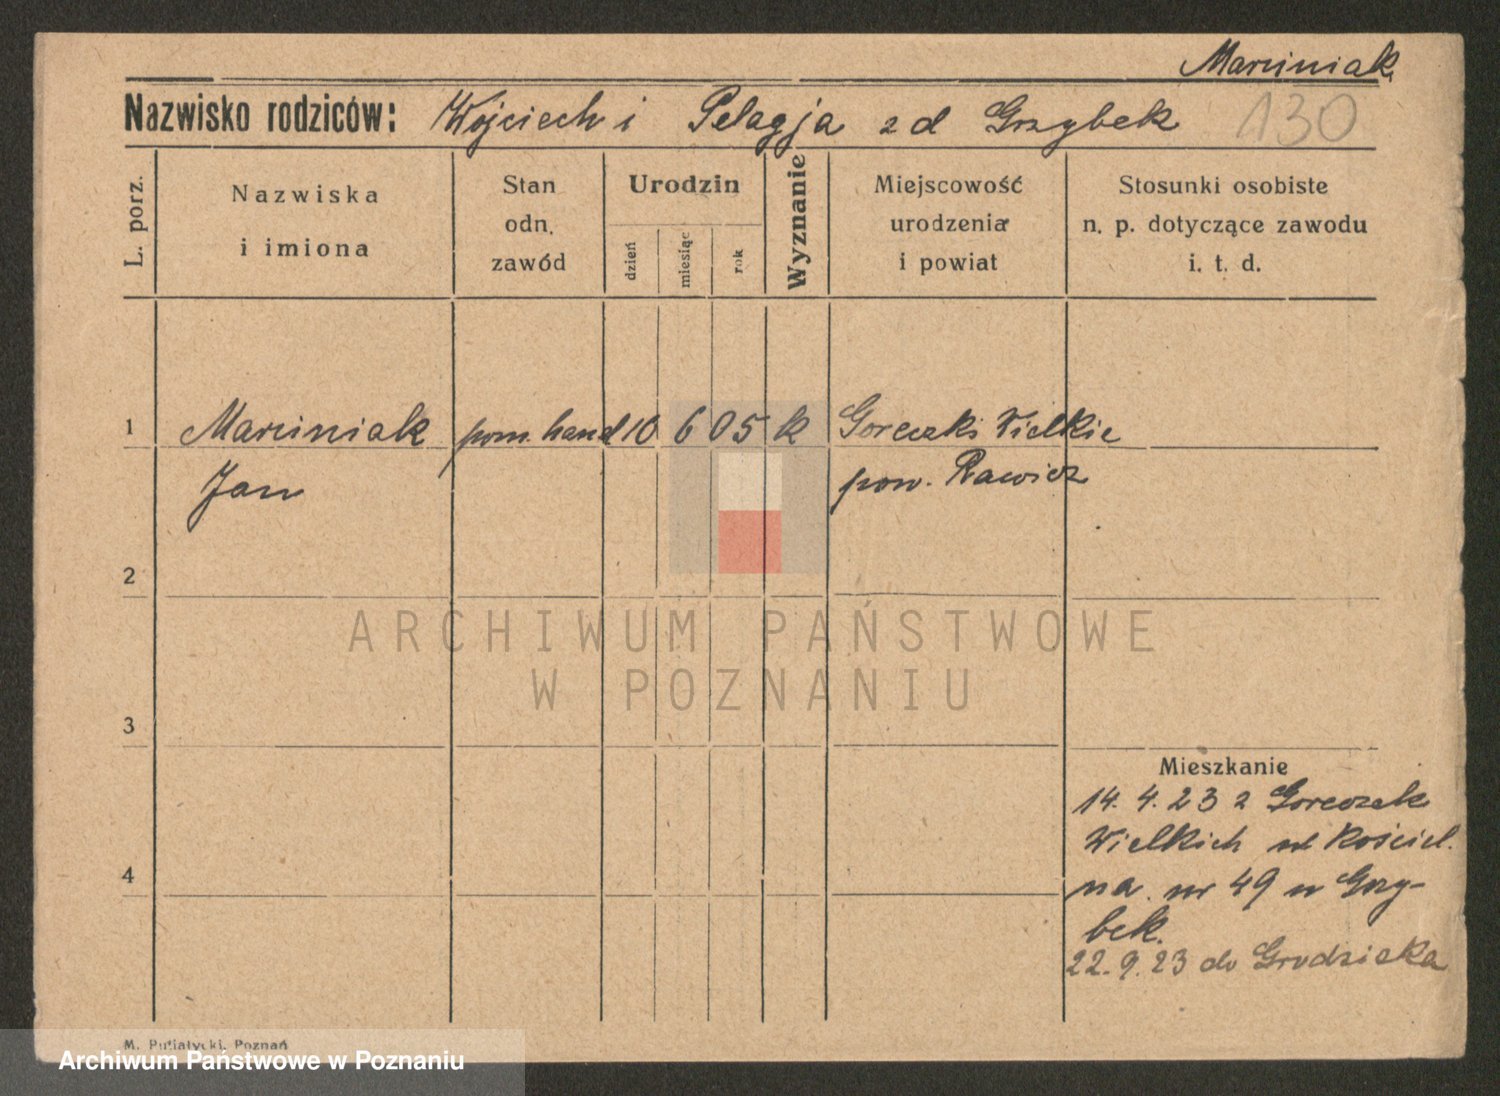 Marciniak.
Nazwisko rodziców: Wojciech i Pelagja z d Grzybek 130
L. porz.
Nazwiska
i imiona
Stan
odn.
zawód
Urodzin
dzień
miesiąc
rok
Wyznanie
Miejscowość
urodzenia
i powiat
Stosunki osobiste
n. p. dotyczące zawodu
i. t. d.
1 Marciniak pom. hand 10 6 05 k Goreczki Wielkie
Jan pow. Rawicz
2
ARCHIWUM PAŃSTWOWE
W POZNANIU
3
Mieszkanie
14. 4. 23 z Goreczek
Wielkich ul Kościel.
na. nr 49 u Grzy-
bek.
4
22. 9. 23 do Grodziska
M. Putiatycki, Poznań
Archiwum Państwowe w Poznaniu